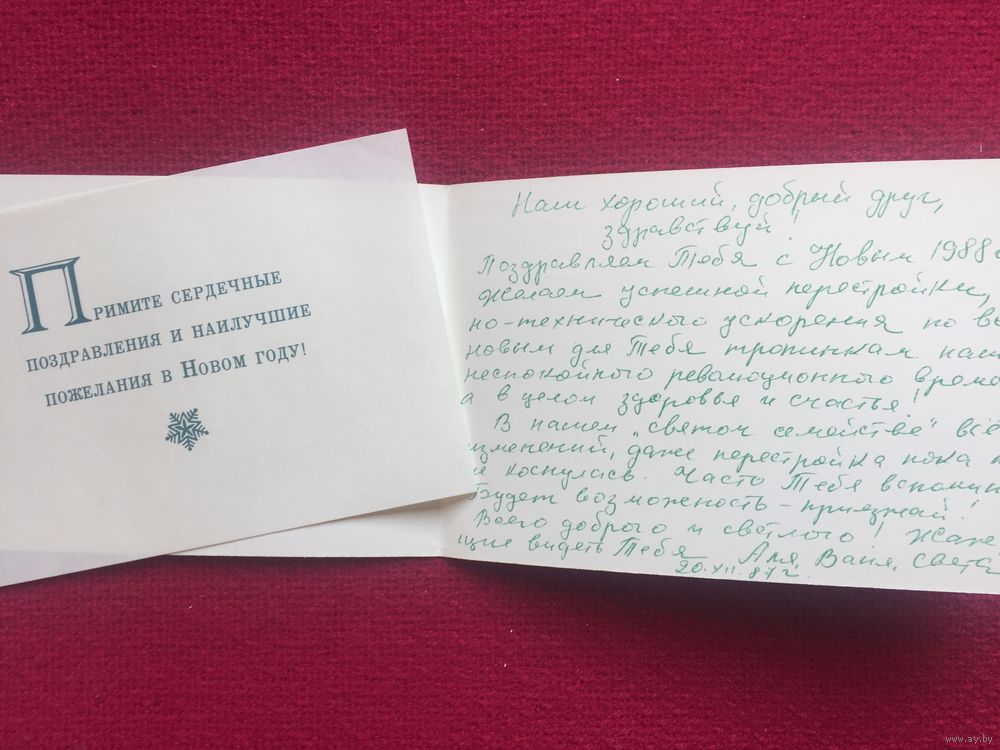 Примите сердечные
поздравления и наилучшие
пожелания в Новом году!
Наш хороший, добрый друг,
здравствуй!
Поздравляем Тебя с Новым 1988
Желаем успешной перестройки,
но-технического ускорения по
новым для Тебя тропинкам
неспокойного революционного
а в целом здоровья и счастья!
В нашем "святом семействе" всё
изменений, даже перестройка пока
не коснулась. Часто Тебя
Будет возможность - приезжай!
Всего доброго и светлого!
щие видеть Тебя Аля, Ваня, Света
20.XII.87 г.
www.ay.by